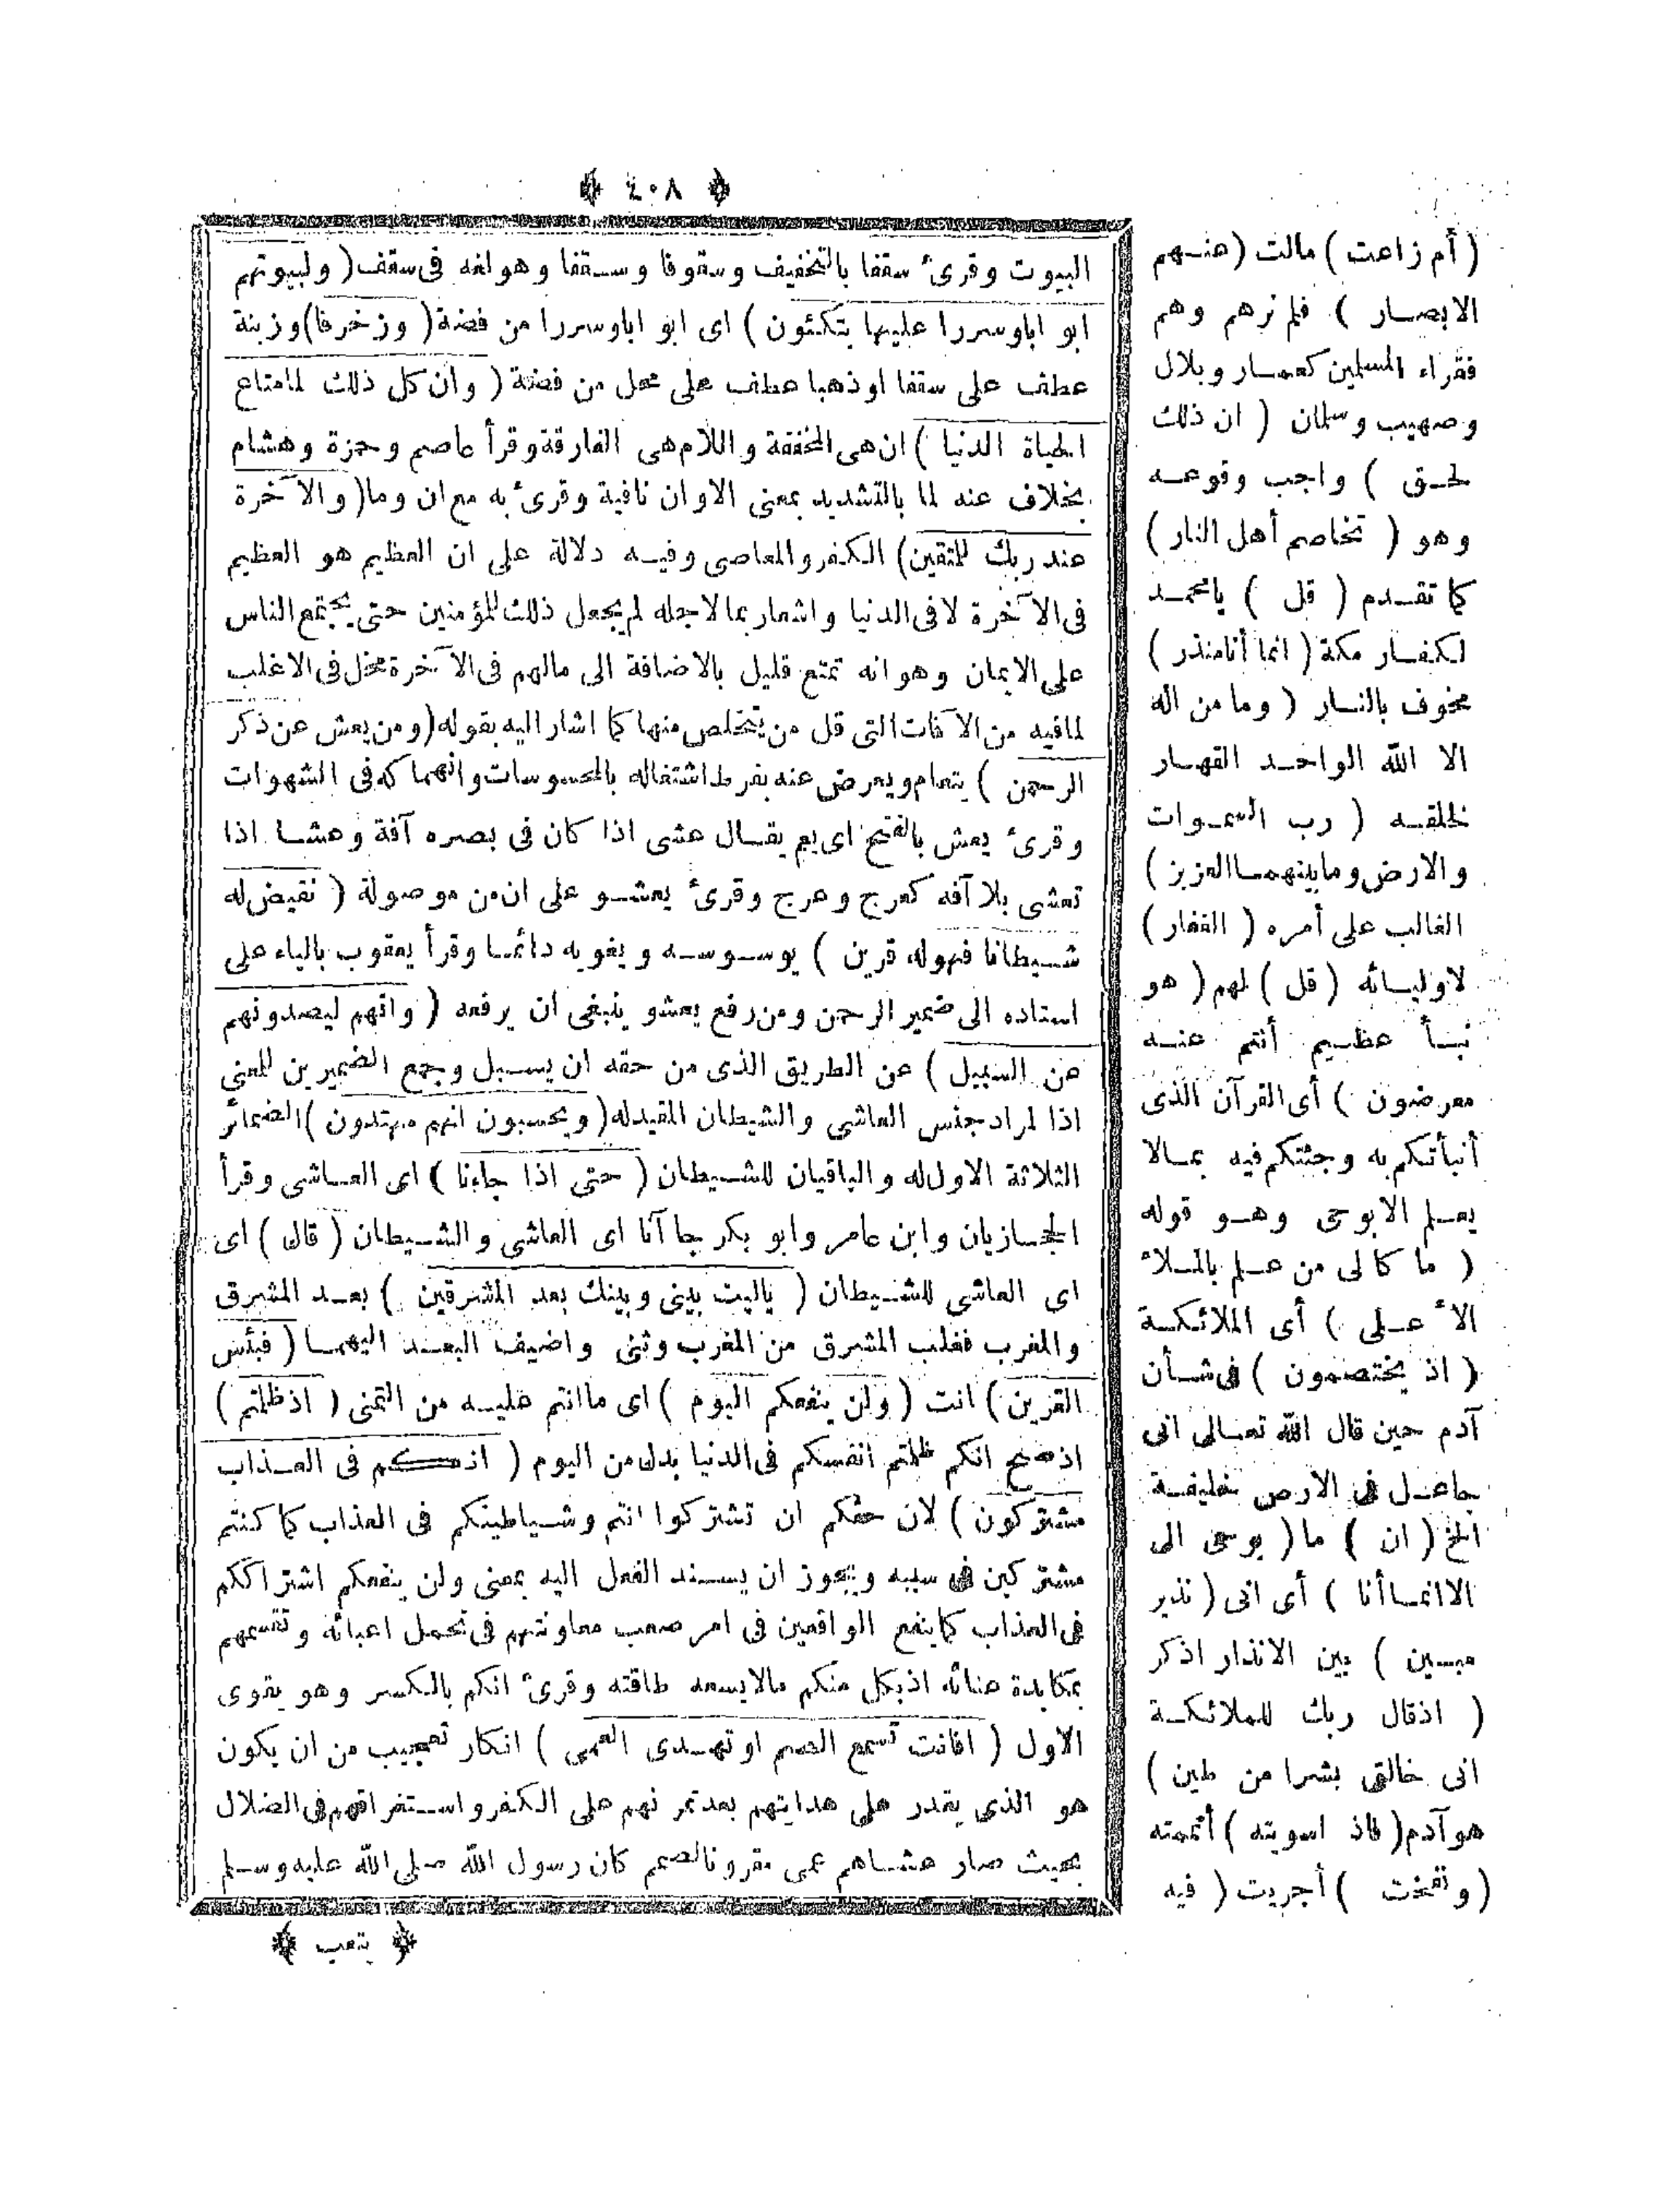 ﴿ ٤٠٨ ﴾
البيوت وقرئ سقفا بالتخفيف وسقوفا وسقفا وهو لغة فى سقف ( ولبيوتهم
ابوابا وسررا عليها يتكئون ) اى ابوابا وسررا من فضة ( وزخرفا ) وزينة
عطف على سقفا او ذهبا عطف على محل من فضة ( وان كل ذلك لما متاع
الحياة الدنيا ) ان هى المخففة واللام هى الفارقة وقرأ عاصم وحمزة وهشام
بخلاف عنه لما بالتشديد بمعنى الا وان نافية وقرئ به مع ان وما ( والآخرة
عند ربك للمتقين ) الكفر والمعاصى وفيه دلالة على ان العظيم هو العظيم
فى الآخرة لا فى الدنيا واشعار بما لاجله لم يجعل ذلك للمؤمنين حتى يجتمع الناس
على الايمان وهو انه تمتع قليل بالاضافة الى مالهم فى الآخرة مخل فى الاغلب
لما فيه من الآفات التى قل من يتخلص منها كما اشار اليه بقوله ( ومن يعش عن ذكر
الرحمن ) يتعام ويعرض عنه بفرط اشتغاله بالمحسوسات وانهماكه فى الشهوات
وقرئ يعش بالفتح اى يعم يقال عشى اذا كان فى بصره آفة وعشا اذا
تعشى بلا آفه كعرج وعرج وقرئ يعشو على ان من موصولة ( نقيض له
شيطانا فهو له قرين ) يوسوسه ويغويه دائما وقرأ يعقوب بالياء على
اسناده الى ضمير الرحمن ومن رفع يعشو ينبغى ان يرفعه ( وانهم ليصدونهم
عن السبيل ) عن الطريق الذى من حقه ان يسبل وجمع الضميرين للمعنى
اذ المراد جنس العاشى والشيطان المقيد له ( ويحسبون انهم مهتدون ) الضمائر
الثلاثة الاول له والباقيان للشيطان ( حتى اذا جاءنا ) اى العاشى وقرأ
الحجازيان وابن عامر وابو بكر جاآنا اى العاشى والشيطان ( قال ) اى
اى العاشى للشيطان ( ياليت بينى وبينك بعد المشرقين ) بعد المشرق
والمغرب فغلب المشرق من المغرب وثنى واضيف البعد اليهما ( فبئس
القرين ) انت ( ولن ينفعكم اليوم ) اى ما انتم عليه من التمنى ( اذ ظلمتم )
اذ صح انكم ظلمتم انفسكم فى الدنيا بدل من اليوم ( انكم فى العذاب
مشتركون ) لان حقكم ان تشتركوا انتم وشياطينكم فى العذاب كما كنتم
مشتركين فى سببه ويجوز ان يسند الفعل اليه بمعنى ولن ينفعكم اشتراككم
فى العذاب كما ينفع الواقعين فى امر صعب معاونتهم فى تحمل اعبائه وتقسمهم
بمكابدة عنائه اذ بكل منكم مالا يسعه طاقته وقرئ انكم بالكسر وهو يقوى
الاول ( افانت تسمع الصم او تهدى العمى ) انكار تعجيب من ان يكون
هو الذى يقدر على هدايتهم بعد تمرنهم على الكفر واستغراقهم فى الضلال
بحيث صار عشاهم عمى مقرونا بالصمم كان رسول الله صلى الله عليه وسلم
﴿ يتعب ﴾
( أم زاغت ) مالت ( عنهم
الابصار ) فلم نرهم وهم
فقراء المسلمين كعمار وبلال
وصهيب وسلمان ( ان ذلك
لحق ) واجب وقوعه
وهو ( تخاصم أهل النار )
كما تقدم ( قل ) يا محمد
لكفار مكة ( انما أنا منذر )
مخوف بالنار ( وما من اله
الا الله الواحد القهار
لخلقه ( رب السموات
والارض وما بينهما العزيز )
الغالب على أمره ( الغفار )
لاوليائه ( قل ) لهم ( هو
نبأ عظيم أنتم عنه
معرضون ) أى القرآن الذى
أنبأتكم به وجئتكم فيه بما لا
يعلم الا بوحى وهو قوله
( ما كا لى من علم بالملأ
الأعلى ) أى الملائكة
( اذ يختصمون ) فى شأن
آدم حين قال الله تعالى انى
جاعل فى الارض خليفة
الخ ( ان ) ما ( يوحى الى
الا انما أنا ) أى انى ( نذير
مبين ) بين الانذار اذكر
( اذ قال ربك للملائكة
انى خالق بشرا من طين )
هو آدم ( فاذا سويته ) أتممته
( ونفخت ) أجريت ( فيه